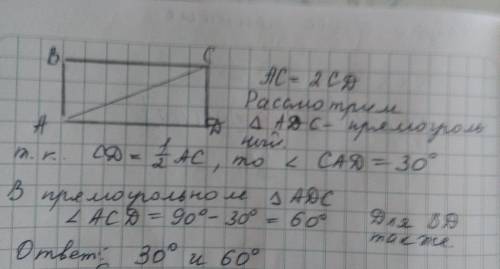 B
C
A
D
AC = 2CD
Рассмотрим
△ADC - прямоуголь
ний.
т.к. CD = 1/2 AC, то ∠ CAD = 30°
В прямоугольном △ADC
∠ACD = 90° - 30° = 60°
Для BD
также
Ответ: 30° и 60°